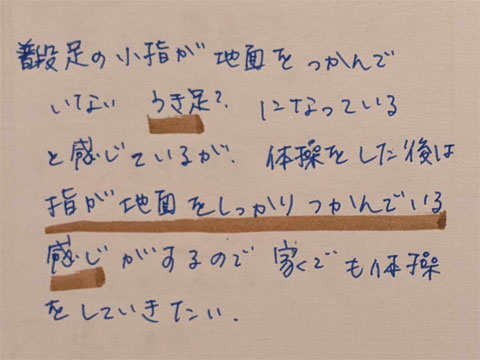 普段足の小指が地面をつかんで
いない うき足? になっている
と感じているが、体操をした後は
指が地面をしっかりつかんでいる
感じがするので 家くでも体操
をしていきたい.